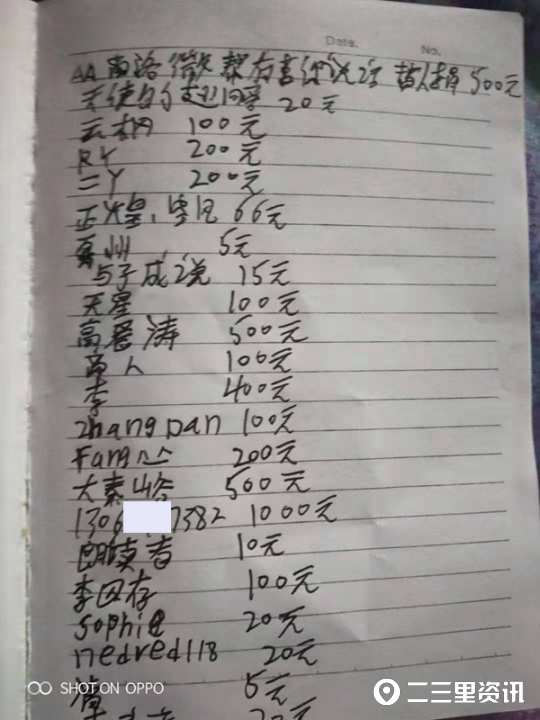 Date. No.
AA商洛微帮有喜你说话 替人捐 500元
天使的 20元
云枫 100元
RY 200元
二丫 200元
正火皇, 66元
5元
与子成说 15元
天星 100元
高晋涛 500元
商人 100元
李 400元
zhangpan 100元
Fang 200元
大秦岭 500元
1306 7382 1000元
朗读者 10元
李四存 100元
Sophie 20元
nedred118 20元
5元
20元
SHOT ON OPPO
二三里资讯